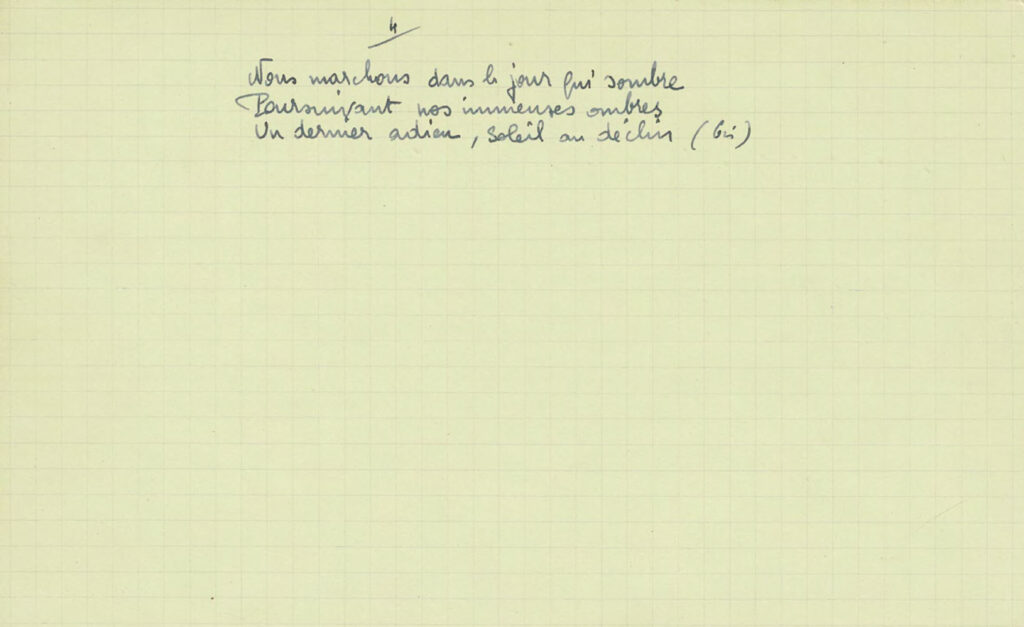 4
Nous marchons dans le jour qui sombre
Poursuivant nos immenses ombres
Un dernier adieu, soleil au déclin (bis)